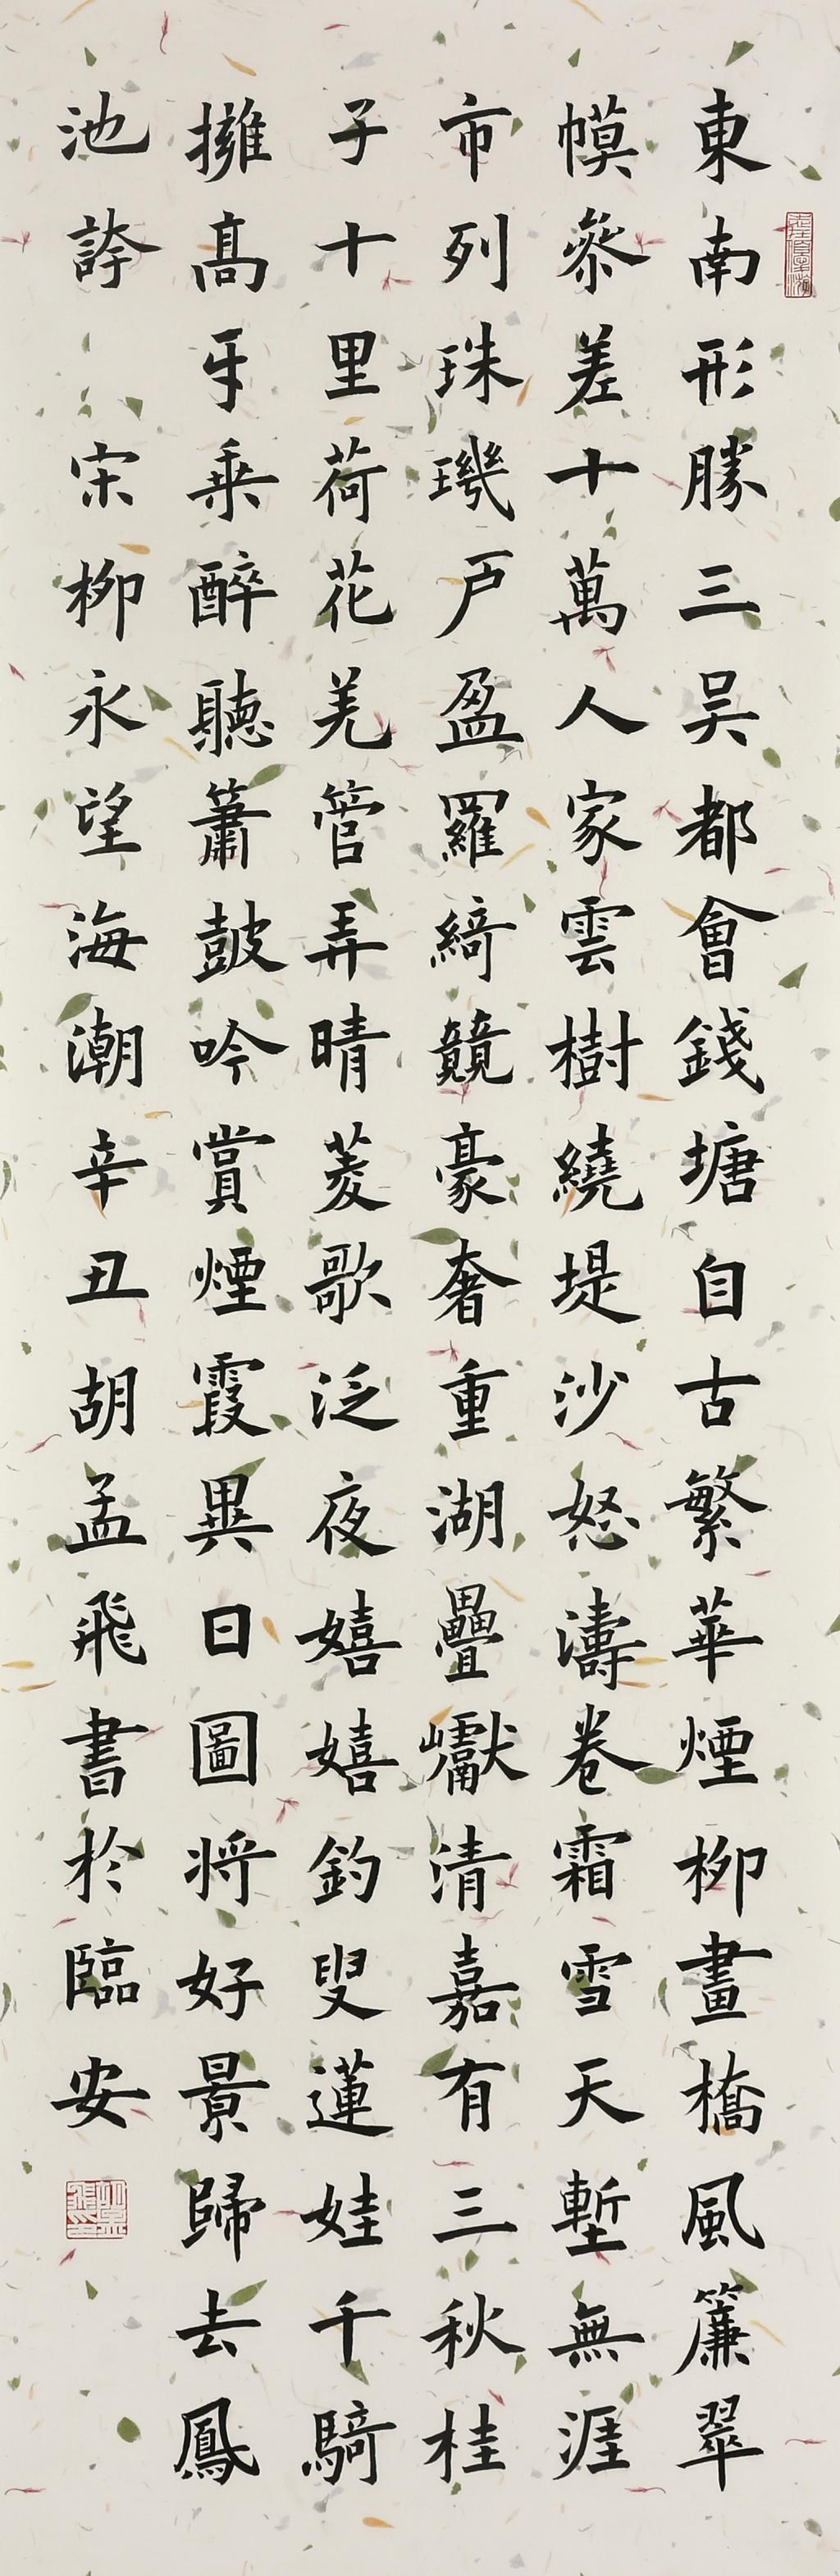 東南形勝三吳都會錢塘自古繁華煙柳畫橋風簾翠
幙參差十萬人家雲樹繞堤沙怒濤卷霜雪天塹無涯
市列珠璣戶盈羅綺競豪奢重湖疊巘清嘉有三秋桂
子十里荷花羌管弄晴菱歌泛夜嬉嬉釣叟蓮娃千騎
擁高牙乘醉聽簫鼓吟賞煙霞異日圖將好景歸去鳳
池誇 宋柳永望海潮辛丑胡孟飛書於臨安